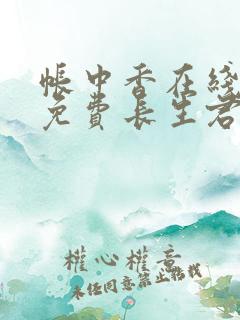 帳中香在綫
免費長生君
權心權意
未經同意禁止轉載